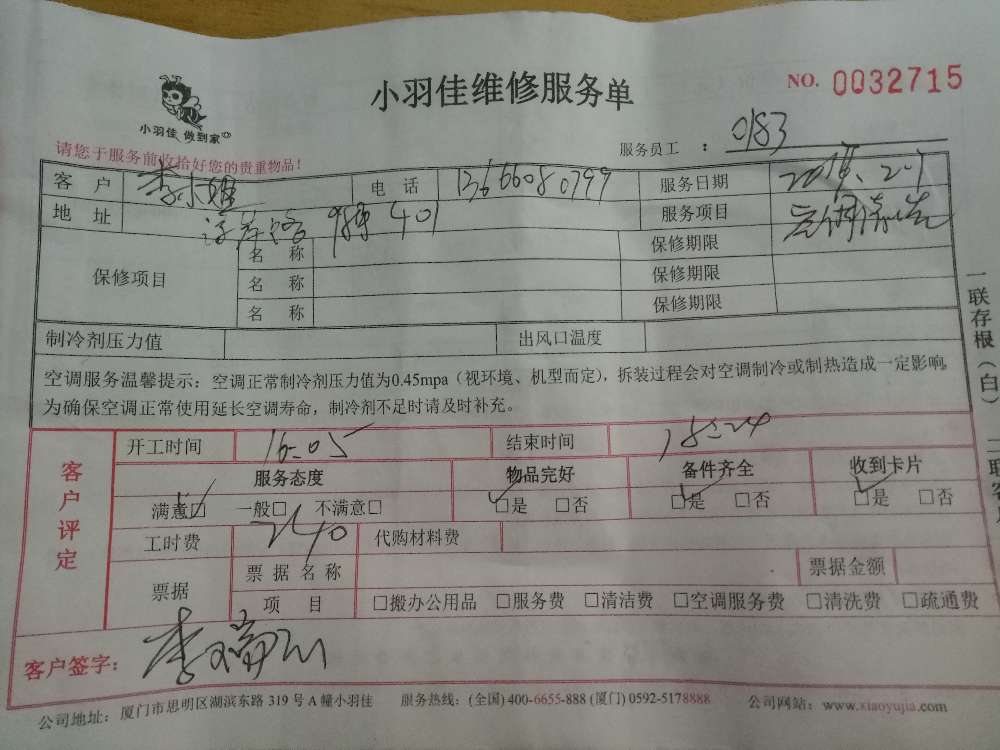 小羽佳维修服务单
NO. 0032715
小羽佳 做到家
请您于服务前收拾好您的贵重物品!
服务员工 : 0183
客 户 李小姐 电 话 13666080799 服务日期
地 址 401 服务项目 空调清洗
保修项目 名 称 保修期限
名 称 保修期限
名 称 保修期限
制冷剂压力值 出风口温度
空调服务温馨提示：空调正常制冷剂压力值为0.45mpa（视环境、机型而定），拆装过程会对空调制冷或制热造成一定影响，
为确保空调正常使用延长空调寿命，制冷剂不足时请及时补充。
客户评定
开工时间 16:05 结束时间 18:24
服务态度 物品完好 备件齐全 收到卡片
满意□ 一般□ 不满意□ □是 □否 □是 □否 □是 □否
工时费 240 代购材料费
票据 票 据 名 称 票据金额
项 目 □搬办公用品 □服务费 □清洁费 □空调服务费 □清洗费 □疏通费
客户签字：
公司地址：厦门市思明区湖滨东路 319 号 A 幢小羽佳 服务热线：(全国) 400-6655-888 (厦门) 0592-5178888 公司网站：www.xiaoyujia.com
一联存根（白）